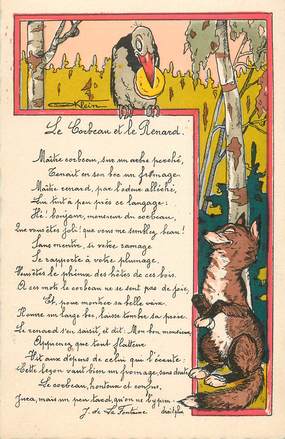 Klein
Le Corbeau et le Renard.
Maître corbeau, sur un arbre perché,
Tenait en son bec un fromage.
Maître renard, par l'odeur alléché,
Lui tint à peu près ce langage:
Hé! bonjour, monsieur du corbeau,
Que vous êtes joli! que vous me semblez beau!
Sans mentir, si votre ramage
Se rapporte à votre plumage,
Vous êtes le phénix des hôtes de ces bois.
A ces mots le corbeau ne se sent pas de joie,
Et, pour montrer sa belle voix,
Il ouvre un large bec, laisse tomber sa proie.
Le renard s'en saisit, et dit: Mon bon monsieur,
Apprenez que tout flatteur
Vit aux dépens de celui qui l'écoute:
Cette leçon vaut bien un fromage, sans doute.
Le corbeau, honteux et confus,
Jura, mais un peu tard, qu'on ne l'y
J. de La Fontaine